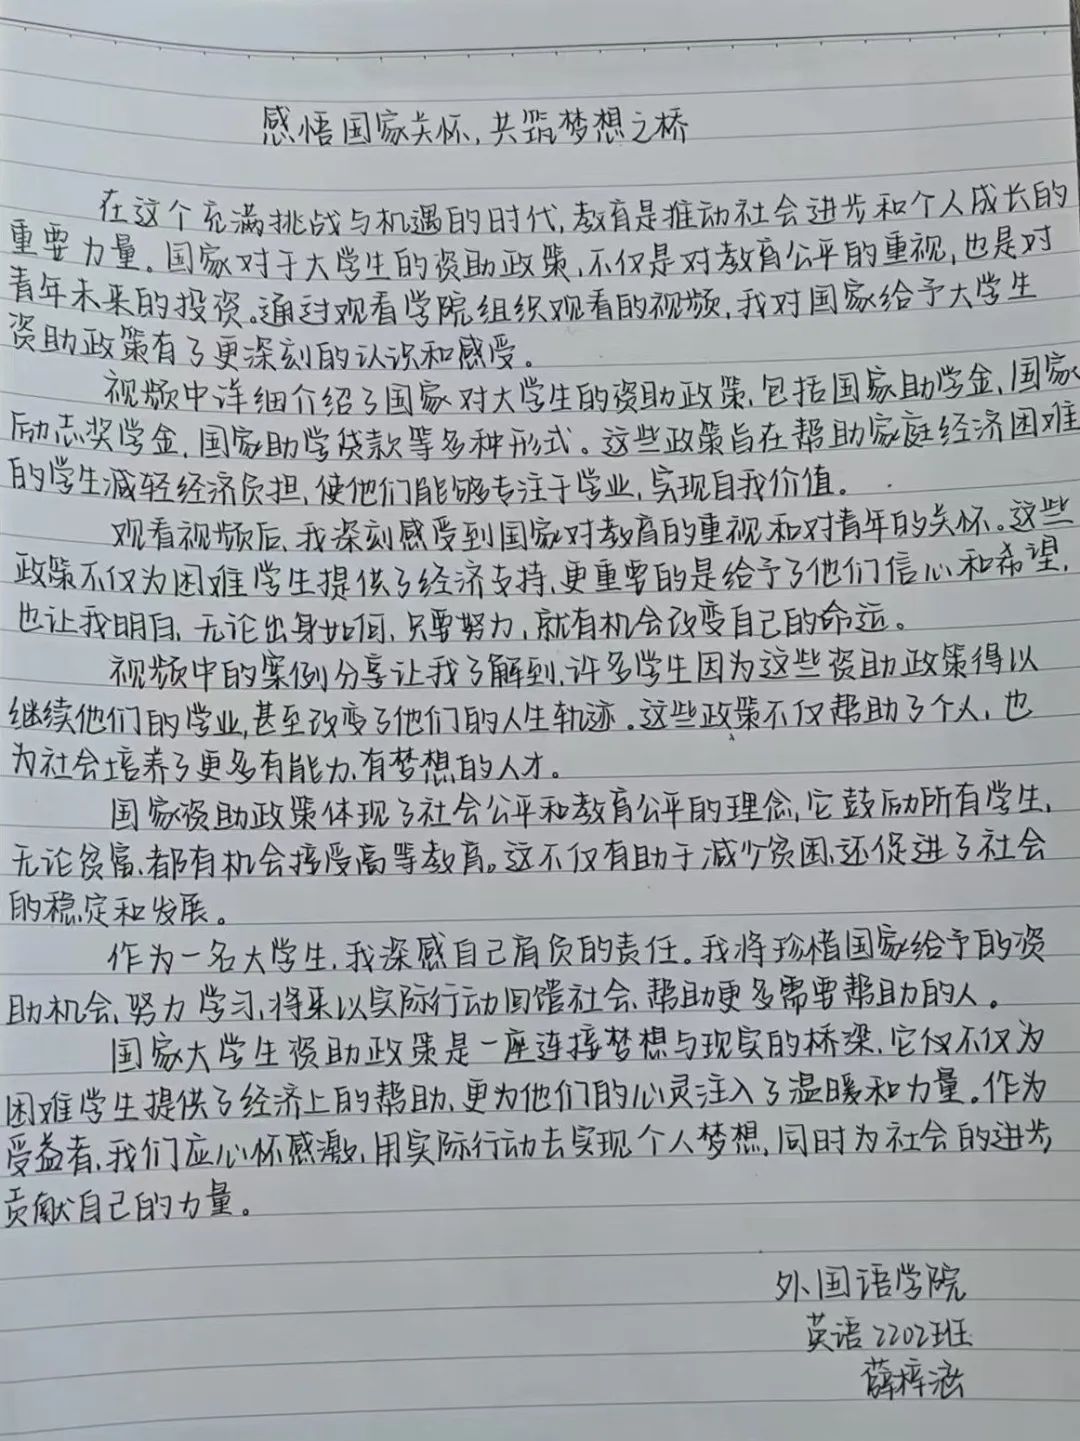 感悟国家关怀,共筑梦想之桥
在这个充满挑战与机遇的时代,教育是推动社会进步和个人成长的
重要力量。国家对于大学生的资助政策,不仅是对教育公平的重视,也是对
青年未来的投资。通过观看学院组织观看的视频,我对国家给予大学生
资助政策有了更深刻的认识和感受。
视频中详细介绍了国家对大学生的资助政策,包括国家助学金,国家
励志奖学金,国家助学贷款等多种形式。这些政策旨在帮助家庭经济困难
的学生减轻经济负担,使他们能够专注于学业,实现自我价值。
观看视频后,我深刻感受到国家对教育的重视和对青年的关怀。这些
政策不仅为困难学生提供了经济支持,更重要的是给予了他们信心和希望,
也让我明白,无论出身如何,只要努力,就有机会改变自己的命运。
视频中的案例分享让我了解到,许多学生因为这些资助政策得以
继续他们的学业,甚至改变了他们的人生轨迹。这些政策不仅帮助了个人,也
为社会培养了更多有能力,有梦想的人才。
国家资助政策体现了社会公平和教育公平的理念,它鼓励所有学生,
无论贫富,都有机会接受高等教育。这不仅有助于减少贫困,还促进了社会
的稳定和发展。
作为一名大学生,我深感自己肩负的责任。我将珍惜国家给予的资
助机会,努力学习,将来以实际行动回馈社会,帮助更多需要帮助的人。
国家大学生资助政策是一座连接梦想与现实的桥梁,它仅不仅为
困难学生提供了经济上的帮助,更为他们的心灵注入了温暖和力量。作为
受益者,我们应心怀感激,用实际行动去实现个人梦想,同时为社会的进步,
贡献自己的力量。
外国语学院
英语2202班
薛梓涵